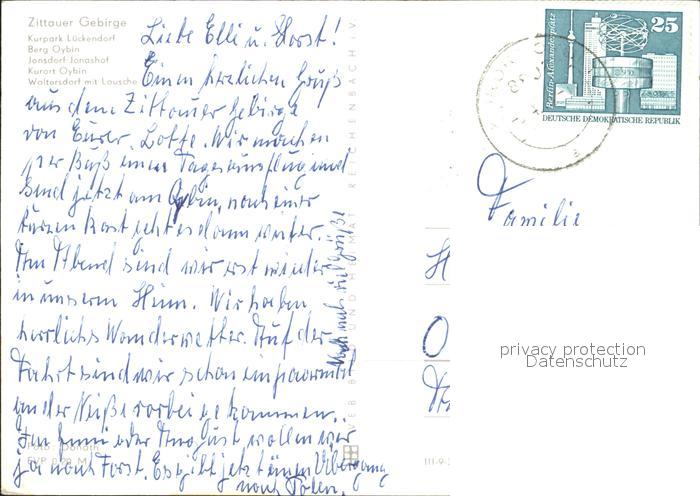 Zittauer Gebirge
Kurpark Lückendorf
Berg Oybin
Jonsdorf Jonashof
Kurort Oybin
Waltersdorf mit Lausche
Liebe Elli u. Horst!
Einen herzlichen Gruß
aus dem Zittauer Gebirge
von Eurer Lotte. Wir machen
per Bus einen Tagesausflug und
sind jetzt am Oybin, nach einer
kurzen Rast geht es dann weiter.
Am Abend sind wir erst wieder
in unserem Heim. Wir haben
herrliches Wanderwetter. Auf der
Fahrt sind wir schon ein paarmal
an der Neiße vorbei gekommen.
Im Juni oder August wollen wir
ja nach Forst. Es gibt jetzt einen Übergang
nach Polen.
Noch mals viel Grüße
Foto: Donath
EVP 0,20 M
VEB BILD UND HEIMAT REICHENBACH i. V.
III-9-
25
Berlin-Alexanderplatz
DEUTSCHE DEMOKRATISCHE REPUBLIK
Familie
H
O
privacy protection
Datenschutz